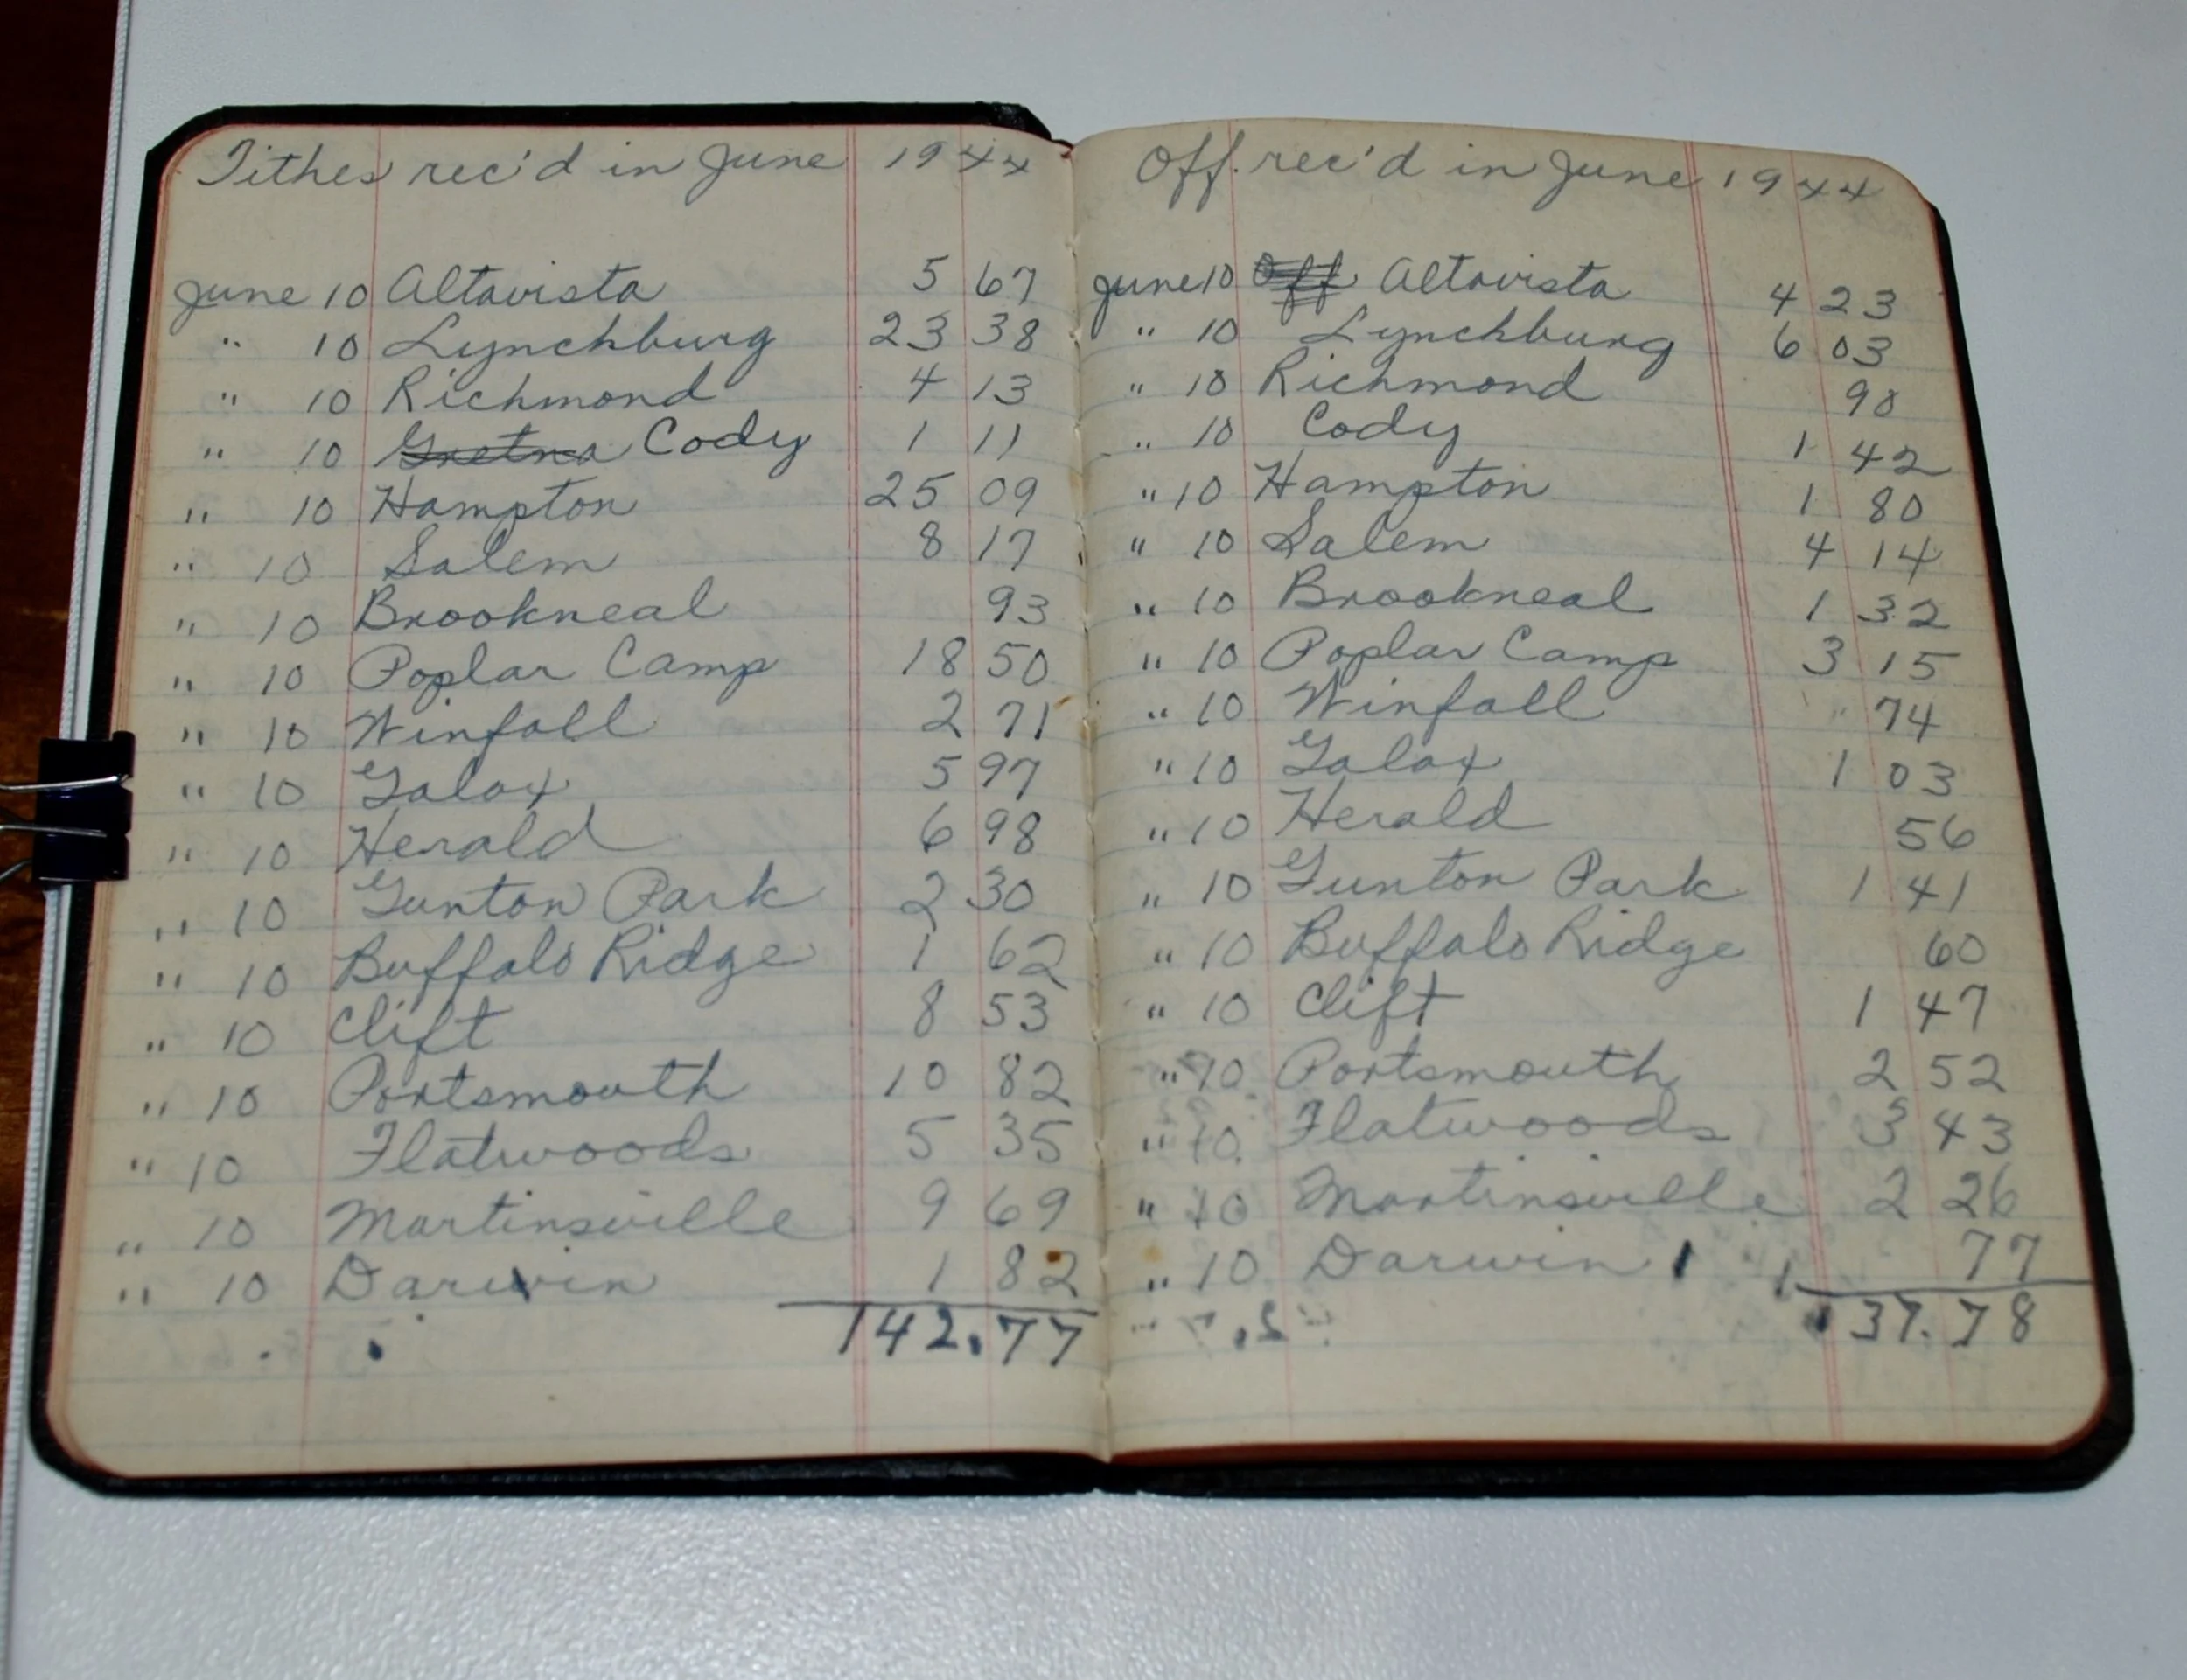 Tithes rec'd in June 1944
June 10 Altavista 5 67
" 10 Lynchburg 23 38
" 10 Richmond 4 13
" 10 Gretna Cody 1 11
" 10 Hampton 25 09
" 10 Salem 8 17
" 10 Brookneal 93
" 10 Poplar Camp 18 50
" 10 Winfall 2 71
" 10 Galax 5 97
" 10 Herald 6 98
" 10 Gunton Park 2 30
" 10 Buffalo Ridge 1 62
" 10 Clift 8 53
" 10 Portsmouth 10 82
" 10 Flatwoods 5 35
" 10 Martinsville 9 69
" 10 Darwin 1 82
142.77
Off. rec'd in June 1944
June 10 Off Altavista 4 23
" 10 Lynchburg 6 03
" 10 Richmond 90
" 10 Cody 1 42
" 10 Hampton 1 80
" 10 Salem 4 14
" 10 Brookneal 1 32
" 10 Poplar Camp 3 15
" 10 Winfall 74
" 10 Galax 1 03
" 10 Herald 56
" 10 Gunton Park 1 41
" 10 Buffalo Ridge 60
" 10 Clift 1 47
" 10 Portsmouth 2 52
" 10 Flatwoods 3 43
" 10 Martinsville 2 26
" 10 Darwin 77
37.78